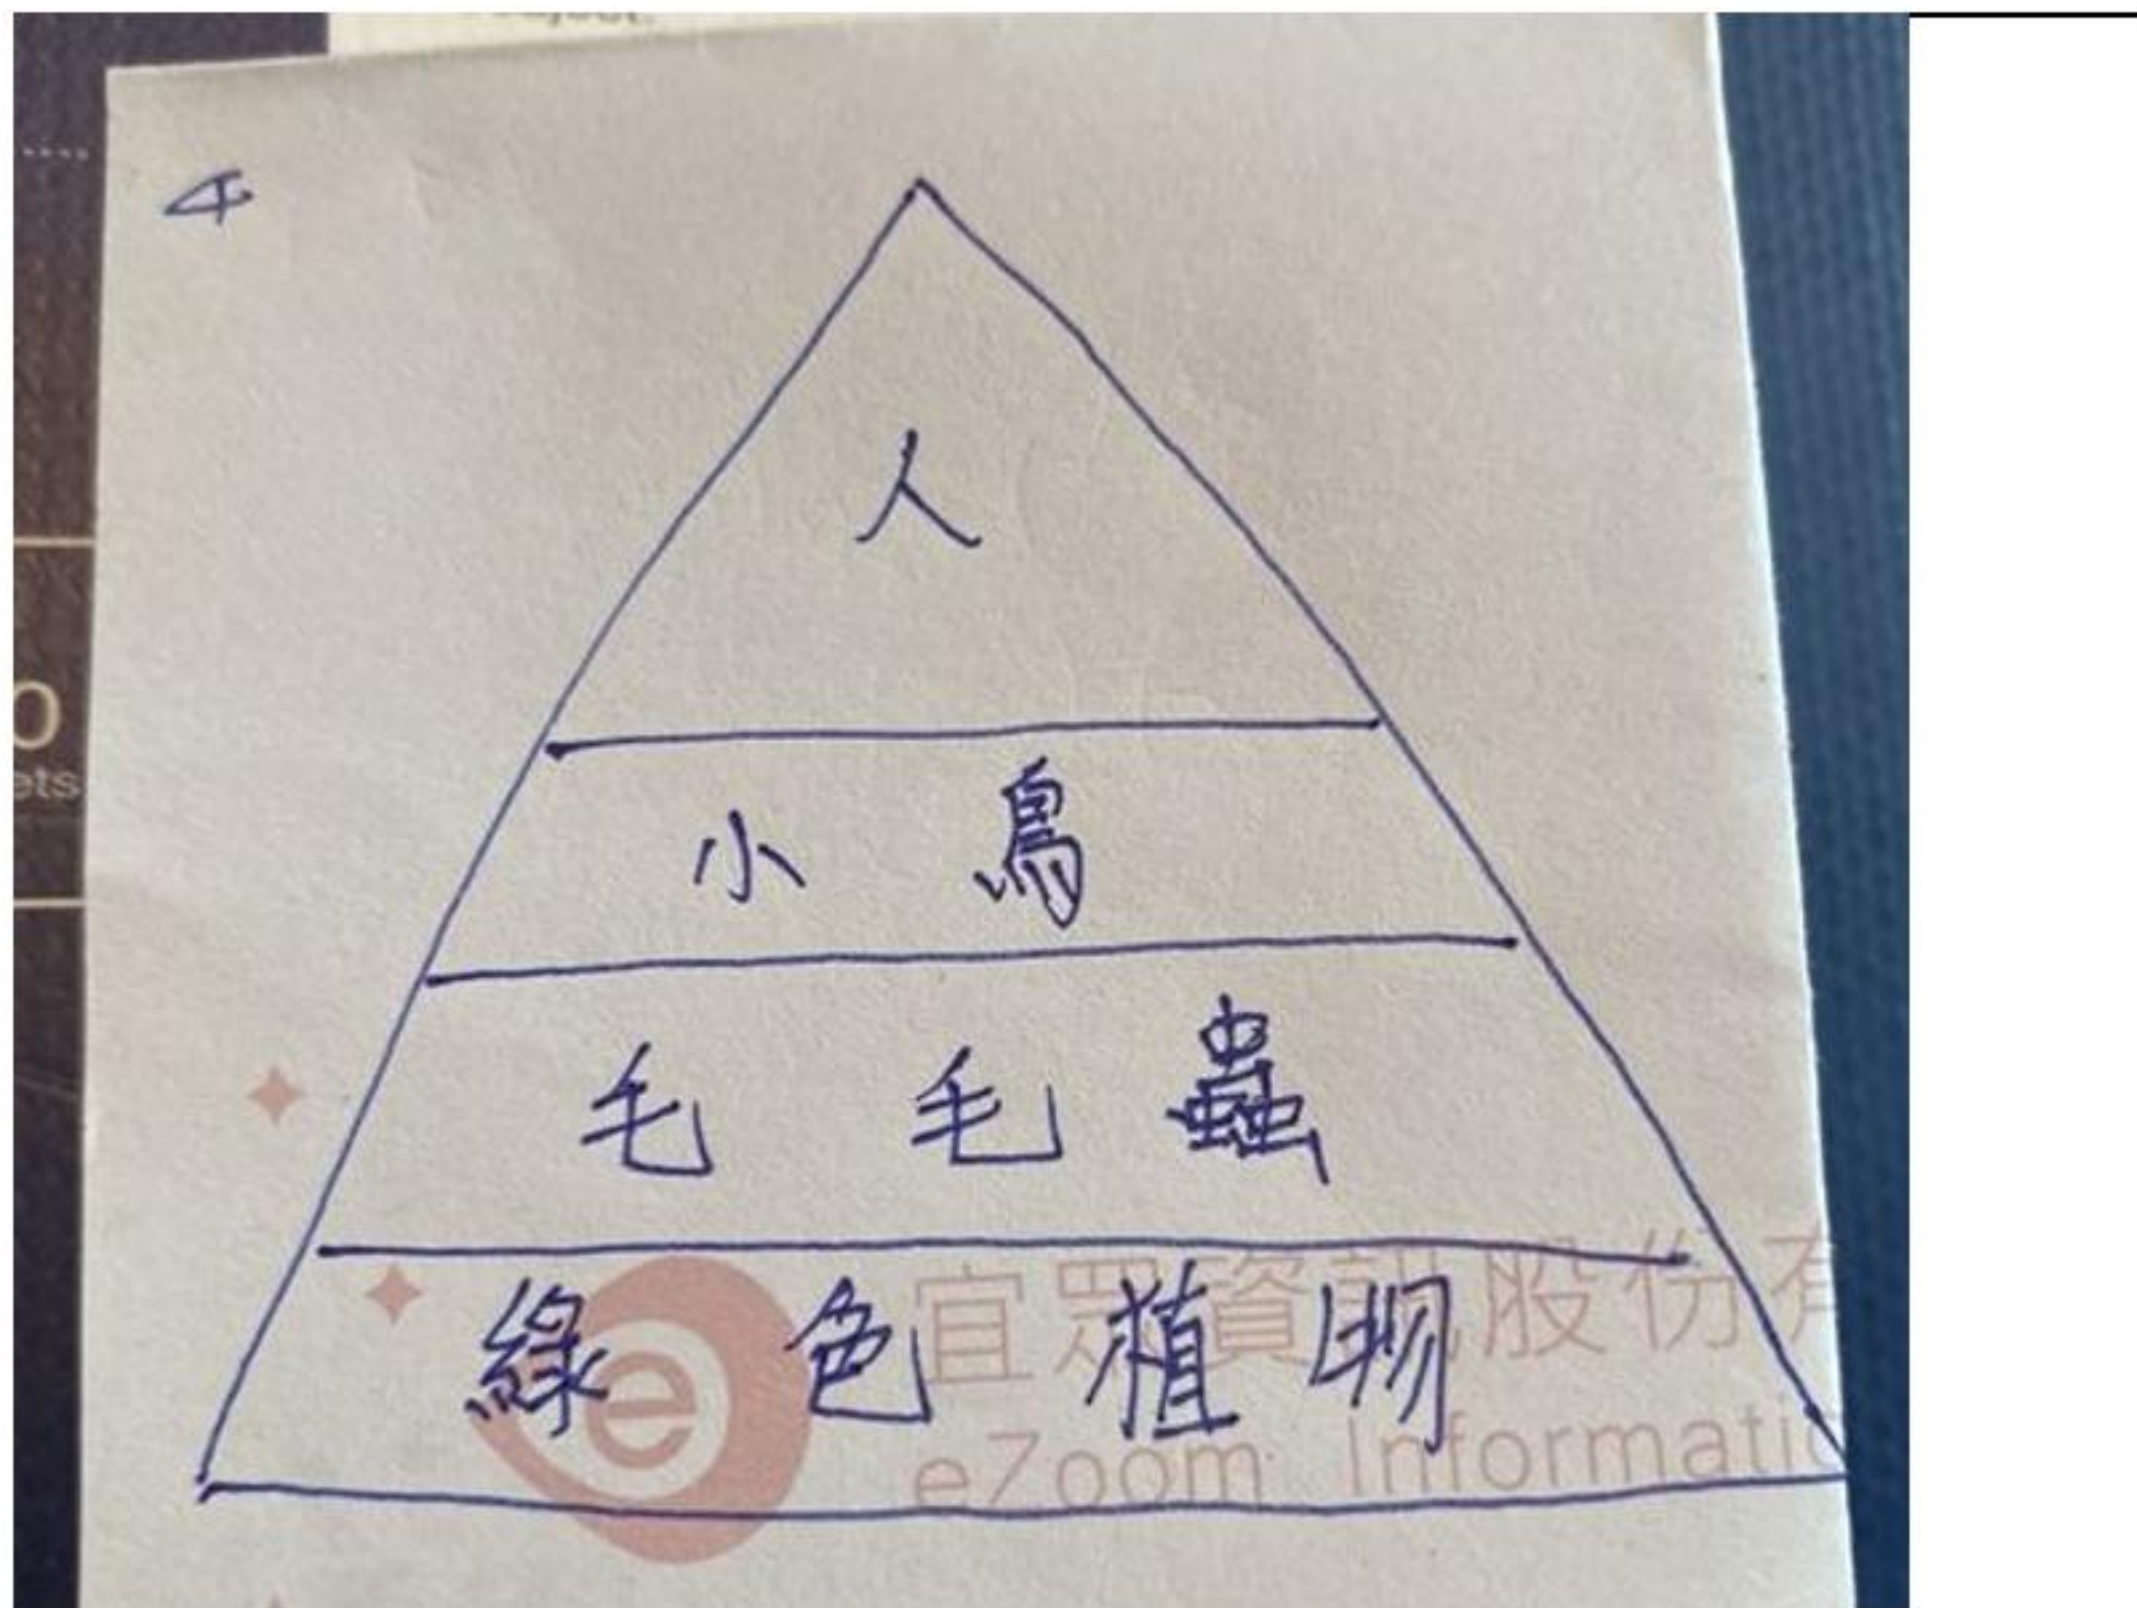 4
人
小鳥
毛毛蟲
綠色植物
宜眾資訊股份有
eZoom Informatio
e
ets